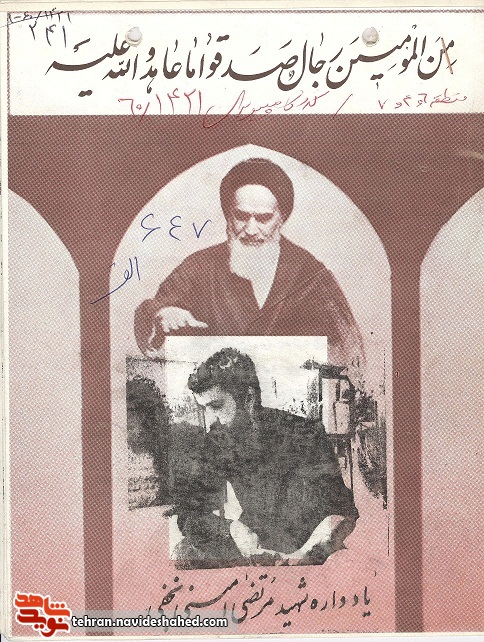 ۱۴۲۱/
۲۴۱
من المومنین رجال صدقوا ما عاهدوالله علیه
منطقه ۶و۴و۷ / کد کامپیوتری ۶۰/۱۴۲۱
۶۴۷
الف
یادواره شهید مرتضی امینی نخعی
نوید شاهد
tehran.navideshahed.com